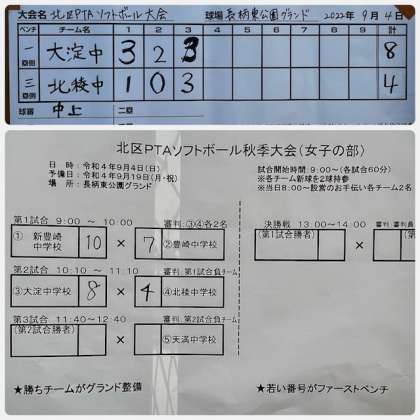 大会名 北区PTAソフトボール大会 球場 長柄東公園グランド 2022年9月4日
ベンチ チーム名 1 2 3 4 5 6 7 8 9 計
一塁側 大淀中 3 2 3 8
三塁側 北稜中 1 0 3 4
球審 中上 二塁
北区PTAソフトボール秋季大会(女子の部)
日 時:令和4年9月4日(日)
予備日:令和4年9月19日(月・祝)
場 所:長柄東公園グランド
試合開始時間 9:00~(各試合60分)
※各チーム新球を2球持参
※当日8:00~設営のお手伝い各チーム2名
第1試合 9:00 ~ 10:00 審判:③④各2名
① 新豊崎中学校 10 × 7 ②豊崎中学校
第2試合 10:10 ~ 11:10 審判:第1試合負チーム
③大淀中学校 8 × 4 ④北稜中学校
第3試合 11:40~12:40 審判:第2試合負チーム
(第2試合勝者) × ⑤天満中学校
決勝戦 13:00~14:00 審判:審判員
(第1試合勝者) × (第3
★勝ちチームがグランド整備
★若い番号がファーストベンチ